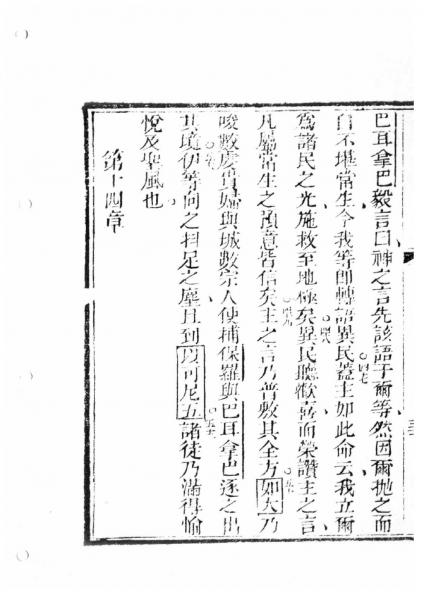 巴耳拿巴毅言曰神之言先該語于爾等然因爾抛之而
自不堪常生今我等即轉語異民蓋主如此命云我立爾
為諸民之光施救至地極矣異民聽歡喜而榮讚主之言
凡屬常生之預意皆信矣主之言乃普敷其全方如大乃
唆數虔貴婦與城數宗人使捕保羅與巴耳拿巴逐之出
其境伊等向之抖足之塵且到以可尼五諸徒乃滿得愉
悅及聖風也
第十四章